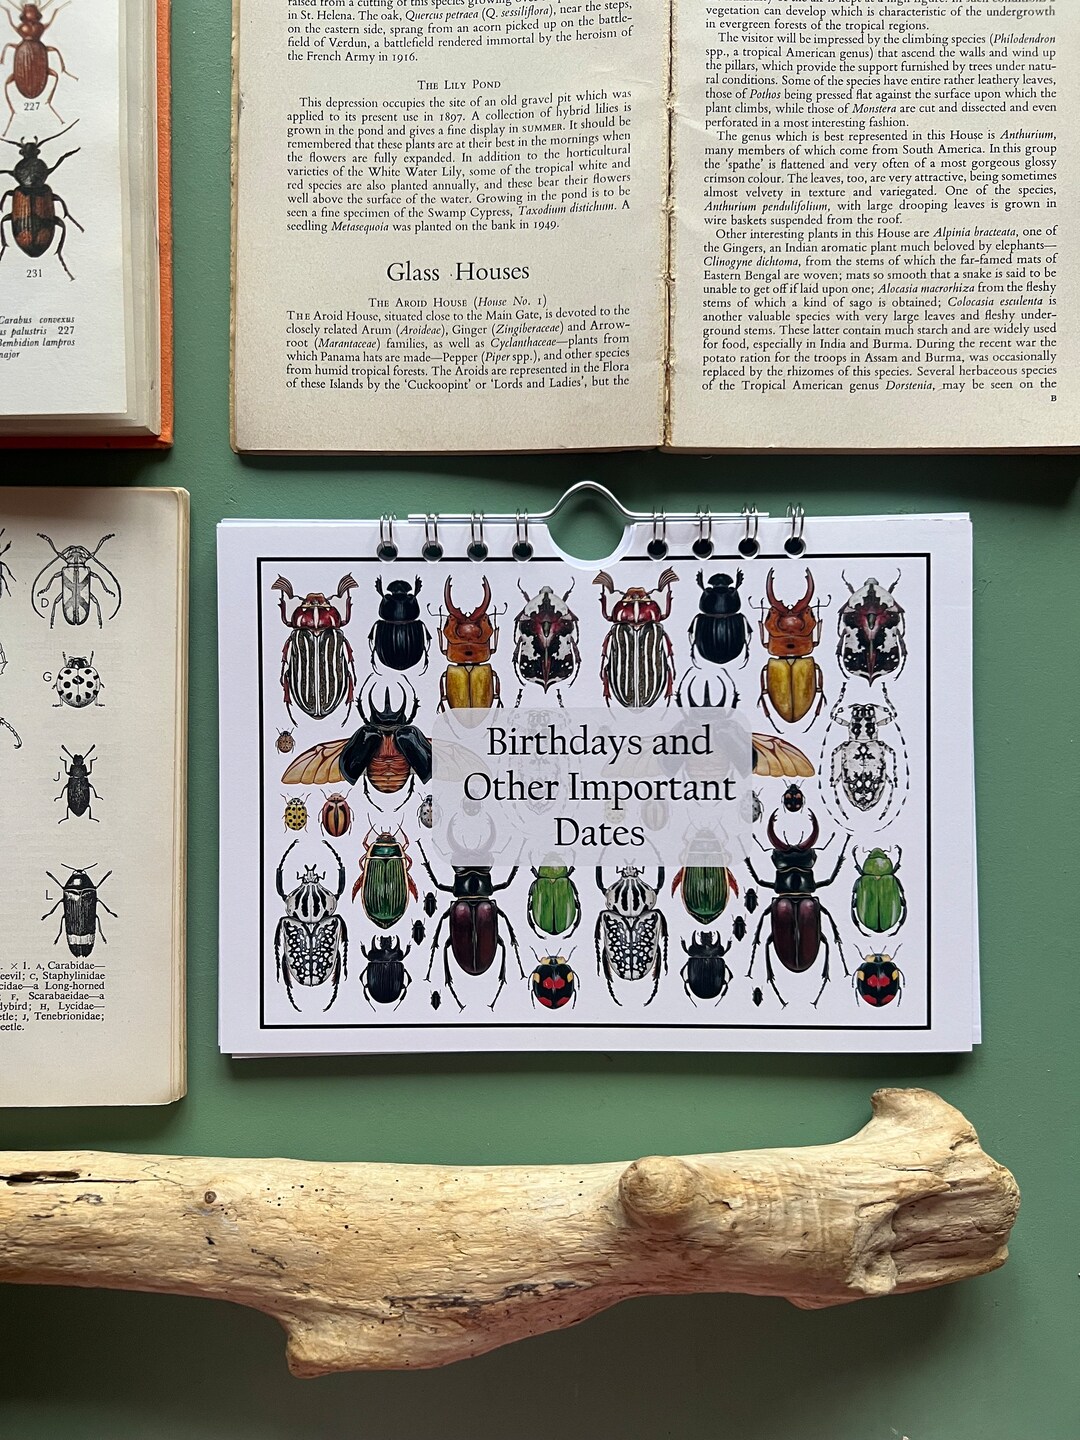 227
231
Carabus convexus
us palustris 227
Bembidion lampros
major
raised from a cutting of this species growing over
in St. Helena. The oak, Quercus petraea (Q. sessiliflora), near the steps,
on the eastern side, sprang from an acorn picked up on the battle-
field of Verdun, a battlefield rendered immortal by the heroism of
the French Army in 1916.
The Lily Pond
This depression occupies the site of an old gravel pit which was
applied to its present use in 1897. A collection of hybrid lilies is
grown in the pond and gives a fine display in SUMMER. It should be
remembered that these plants are at their best in the mornings when
the flowers are fully expanded. In addition to the horticultural
varieties of the White Water Lily, some of the tropical white and
red species are also planted annually, and these bear their flowers
well above the surface of the water. Growing in the pond is to be
seen a fine specimen of the Swamp Cypress, Taxodium distichum. A
seedling Metasequoia was planted on the bank in 1949.
Glass Houses
The Aroid House (House No. 1)
The Aroid House, situated close to the Main Gate, is devoted to the
closely related Arum (Aroideae), Ginger (Zingiberaceae) and Arrow-
root (Marantaceae) families, as well as Cyclanthaceae—plants from
which Panama hats are made—Pepper (Piper spp.), and other species
from humid tropical forests. The Aroids are represented in the Flora
of these Islands by the 'Cuckoopint' or 'Lords and Ladies', but the
vegetation can develop which is characteristic of the undergrowth
in evergreen forests of the tropical regions.
The visitor will be impressed by the climbing species (Philodendron
spp., a tropical American genus) that ascend the walls and wind up
the pillars, which provide the support furnished by trees under natu-
ral conditions. Some of the species have entire rather leathery leaves,
those of Pothos being pressed flat against the surface upon which the
plant climbs, while those of Monstera are cut and dissected and even
perforated in a most interesting fashion.
The genus which is best represented in this House is Anthurium,
many members of which come from South America. In this group
the 'spathe' is flattened and very often of a most gorgeous glossy
crimson colour. The leaves, too, are very attractive, being sometimes
almost velvety in texture and variegated. One of the species,
Anthurium pendulifolium, with large drooping leaves is grown in
wire baskets suspended from the roof.
Other interesting plants in this House are Alpinia bracteata, one of
the Gingers, an Indian aromatic plant much beloved by elephants—
Clinogyne dichtoma, from the stems of which the far-famed mats of
Eastern Bengal are woven; mats so smooth that a snake is said to be
unable to get off if laid upon one; Alocasia macrorhiza from the fleshy
stems of which a kind of sago is obtained; Colocasia esculenta is
another valuable species with very large leaves and fleshy under-
ground stems. These latter contain much starch and are widely used
for food, especially in India and Burma. During the recent war the
potato ration for the troops in Assam and Burma, was occasionally
replaced by the rhizomes of this species. Several herbaceous species
of the Tropical American genus Dorstenia, may be seen on the
B
D
G
J
L
. × 1. A, Carabidae—
eevil; C, Staphylinidae
cidae—a Long-horned
; F, Scarabaeidae—a
dybird; H, Lycidae—
etle; J, Tenebrionidae;
eetle.
Birthdays and
Other Important
Dates